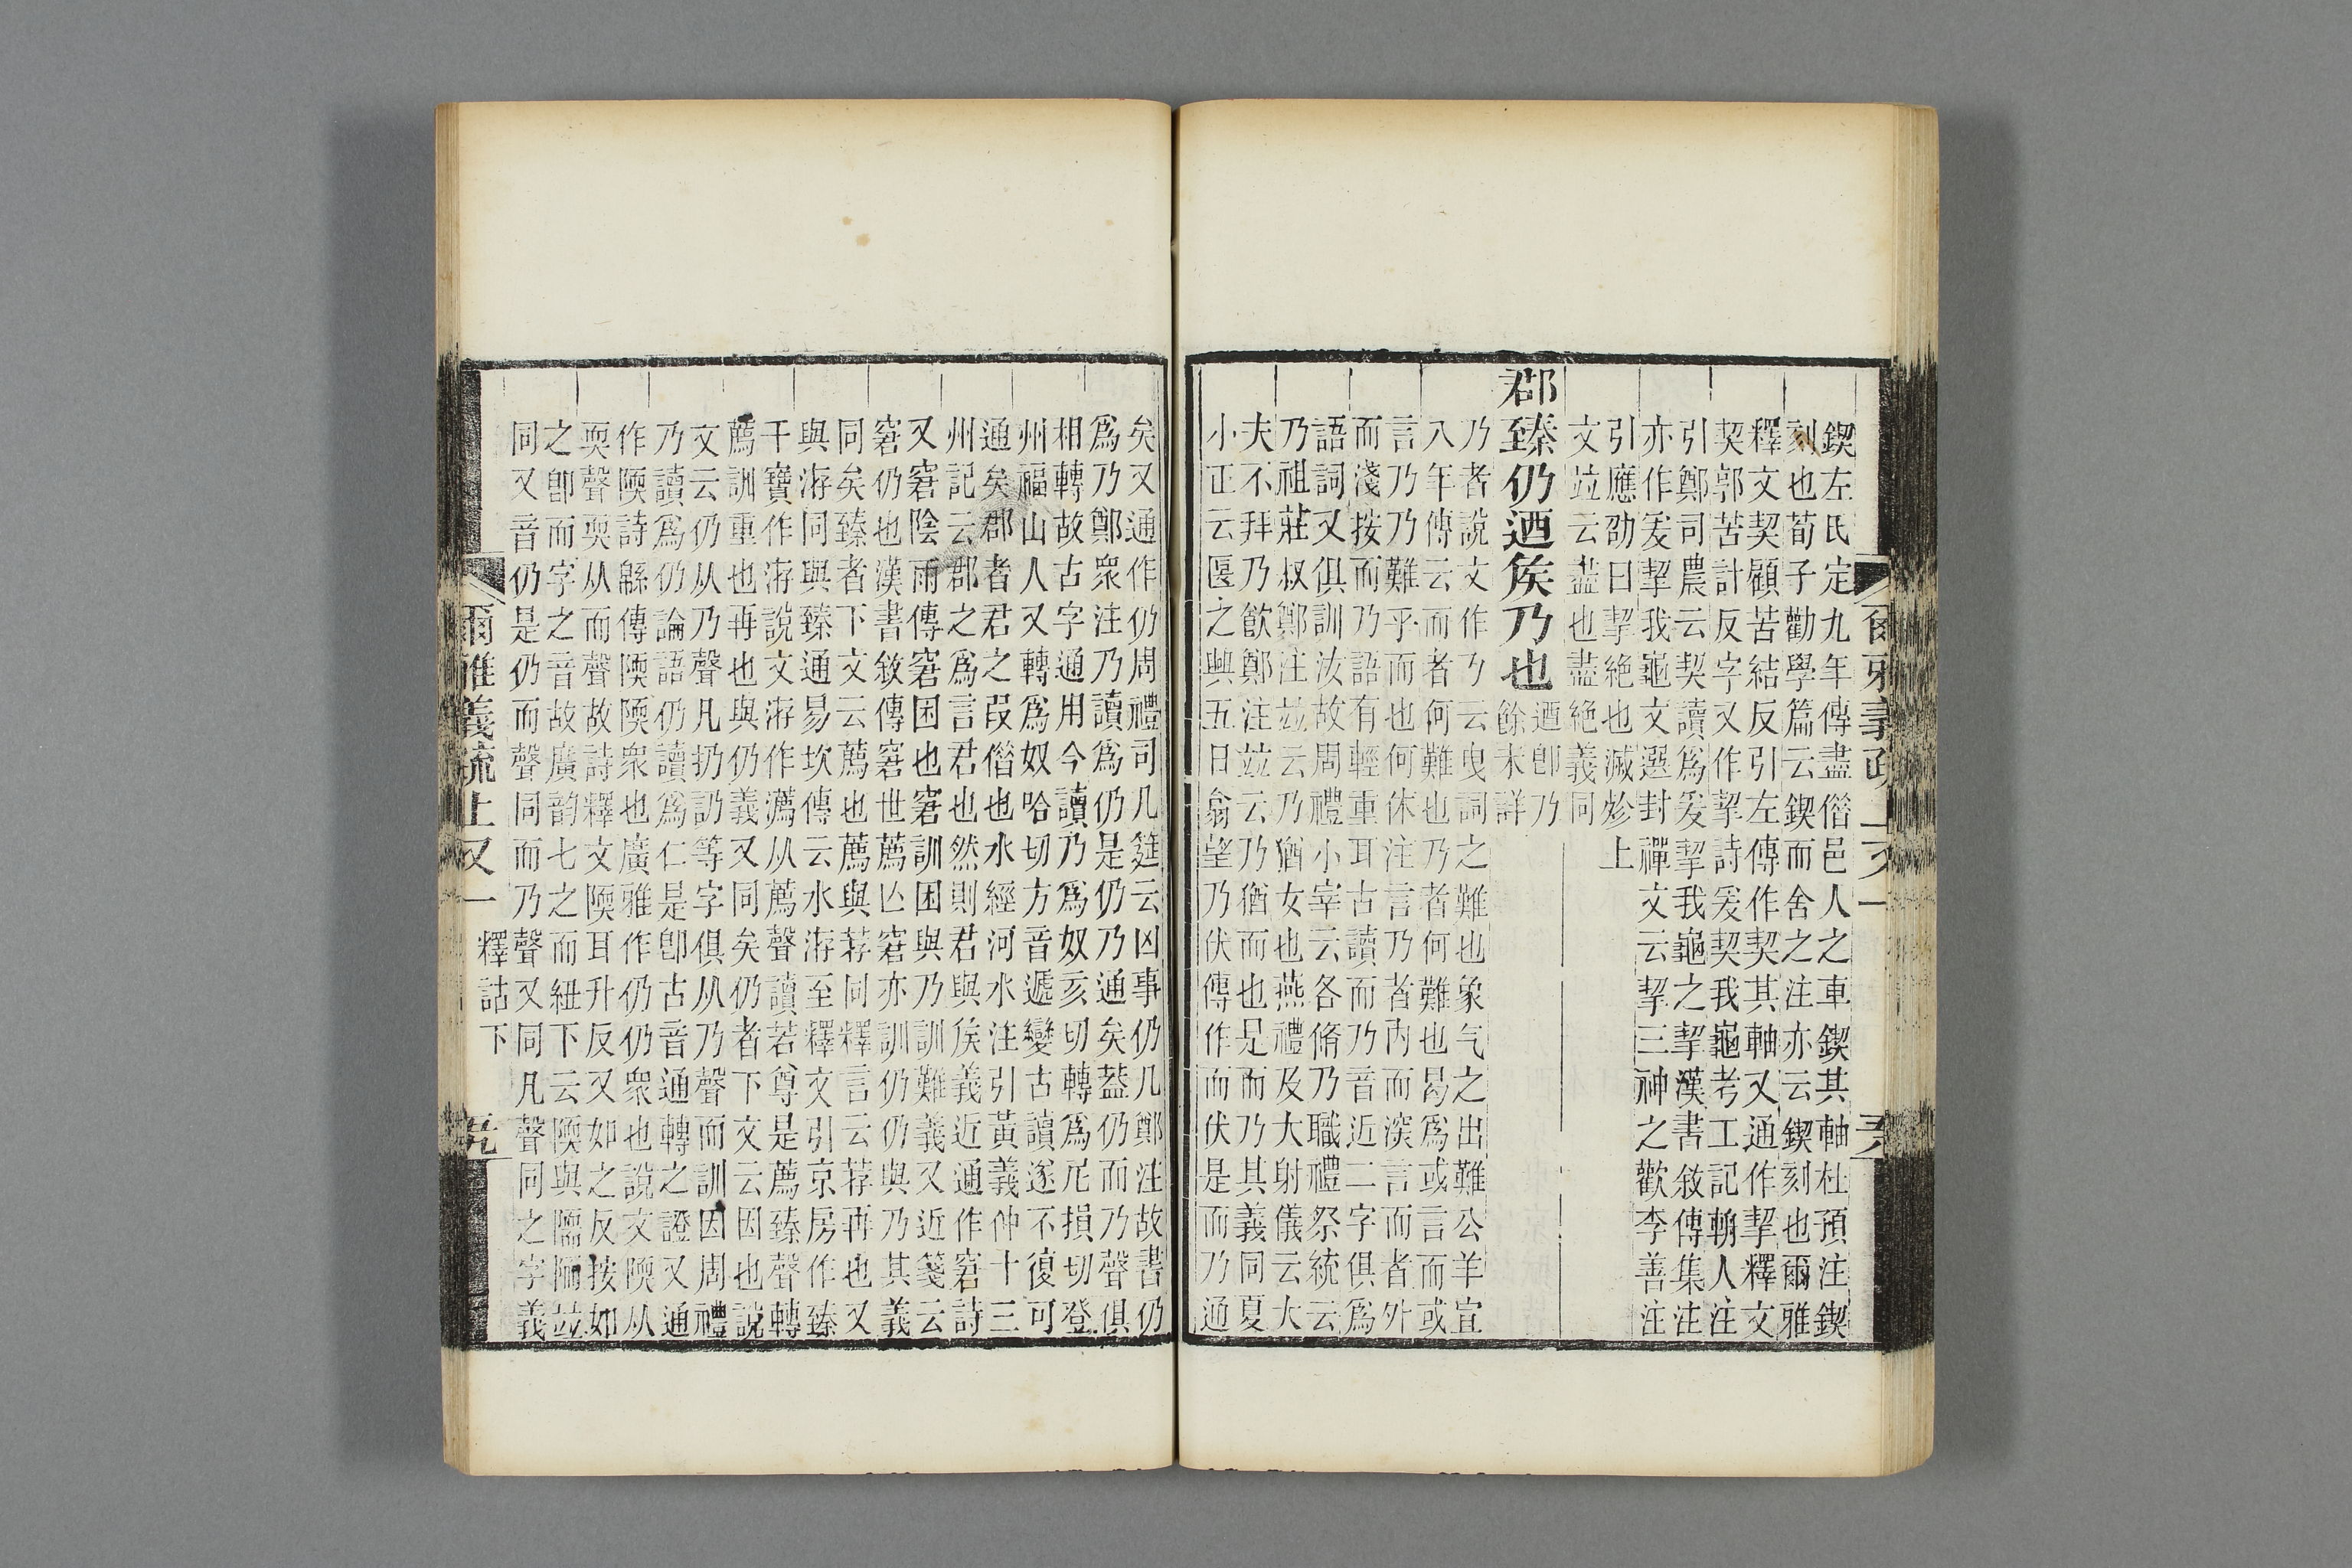 鍥左氏定九年傳盡偺邑人之車鍥其軸杜預注鍥
刻也荀子勸學篇云鍥而舍之注亦云鍥刻也爾雅
釋文契顧苦結反引左傳作契其軸又通作挈釋文
契郭苦計反字又作挈詩爰契我龜考工記輈人注
引鄭司農云契讀爲爰挈我龜之挈漢書敘傳集注
亦作爰挈我龜文選封禪文云挈三神之歡李善注
引應劭曰挈絕也滅㱦上
文竝云盡也盡絕義同
郡臻仍迺矦乃也
迺卽乃
餘未詳
乃者說文作𠄎云曳詞之難也象气之出難公羊宣
八年傳云而者何難也乃者何難也曷爲或言而或
言乃乃難乎而也何休注言乃者內而深言而者外
而淺按而乃語有輕重耳古讀而乃音近二字俱爲
語詞又俱訓汝故周禮小宰云各脩乃職禮祭統云
乃祖莊叔鄭注竝云乃猶女也燕禮及大射儀云大
夫不拜乃飮鄭注竝云乃猶而也是而乃其義同夏
小正云匽之興五日翕望乃伏傳作而伏是而乃通
矣又通作仍周禮司几筵云凶事仍几鄭注故書仍
爲乃鄭衆注乃讀爲仍是仍乃通矣葢仍而乃聲俱
相轉故古字通用今讀乃爲奴亥切轉爲𡰥損切登
州福山人又轉爲奴哈切方音遞變古讀遂不復可
通矣郡者君之叚偺也水經河水注引黃義仲十三
州記云郡之爲言君也然則君與矦義近通作窘詩
又窘陰雨傳窘困也窘訓困與乃訓難義又近箋云
窘仍也漢書敘傳窘世薦亡窘亦訓仍仍與乃其義
同矣臻者下文云薦也薦與荐同釋言云荐再也又
與洊同與臻通易坎傳云水洊至釋文引京房作臻
干寶作洊說文洊作瀳从薦聲讀若尊是薦臻聲轉
薦訓重也再也與仍義又同矣仍者下文云因也說
文云仍从乃聲凡扔訒等字俱从乃聲而訓因周禮
乃讀爲仍論語仍讀爲仁是卽古音通轉之證又通
作陾詩緜傳陾陾衆也廣雅作仍仍衆也說文陾从
耎聲耎从而聲故詩釋文陾耳升反又如之反按如
之卽而字之音故廣韵七之而紐下云陾與隭陑竝
同又音仍是仍而聲同而乃聲又同凡聲同之字義
爾雅義疏上又一 釋詁下